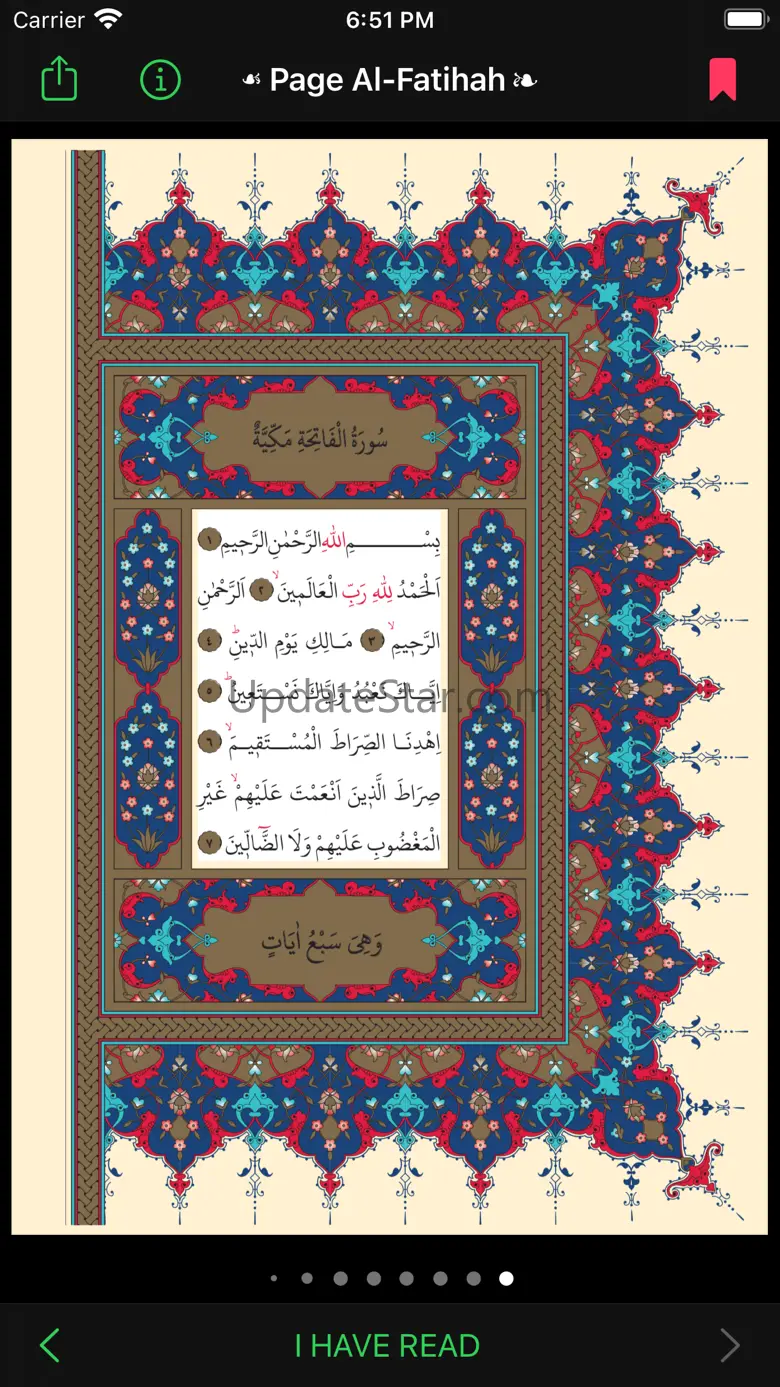 Carrier 6:51 PM
☙ Page Al-Fatihah ❧
سُورَةُ الْفَاتِحَةِ مَكِّيَّةٌ
بِسْــــــــمِ اللهِ الرَّحْمٰنِ الرَّحٖيمِ ١
اَلْحَمْدُ لِلّٰهِ رَبِّ الْعَالَمٖينَۙ ٢ اَلرَّحْمٰنِ
الرَّحٖيمِۙ ٣ مَـالِكِ يَوْمِ الدّٖينِؕ ٤
اِيَّـاكَ نَعْبُدُ وَاِيَّاكَ نَسْـتَعٖينُؕ ٥
UpdateStar.com
اِهْدِنَـا الصِّرَاطَ الْمُسْـتَقٖيـمَۙ ٦
صِرَاطَ الَّذٖينَ اَنْعَمْتَ عَلَيْهِمْۙ غَيْرِ
الْمَغْضُوبِ عَلَيْهِمْ وَلَا الضَّٓالّٖينَ ٧
وَهِيَ سَبْعُ اٰيَاتٍ
I HAVE READ